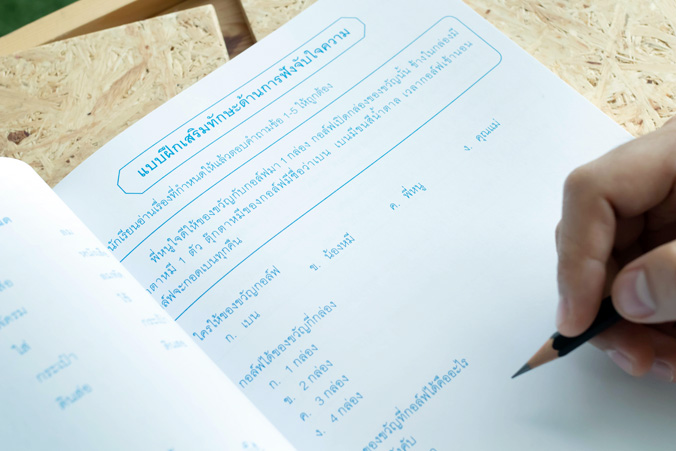 แบบฝึกเสริมทักษะด้านการฟังจับใจความ
นักเรียนอ่านเรื่องที่กำหนดให้แล้วตอบคำถามข้อ 1-5 ให้ถูกต้อง
พี่หนูใจดีให้ของขวัญกับกอล์ฟมา 1 กล่อง กอล์ฟเปิดกล่องของขวัญนั้น ข้างในกล่องมี
ตุ๊กตาหมี 1 ตัว ตุ๊กตาหมีของกอล์ฟมีชื่อว่าเบน เบนมีขนสีน้ำตาล เวลากอล์ฟเข้านอน
กอล์ฟจะกอดเบนทุกคืน
ใครให้ของขวัญกอล์ฟ
ก. เบน ข. น้องหมี ค. พี่หนู ง. คุณแม่
กอล์ฟได้ของขวัญกี่กล่อง
ก. 1 กล่อง
ข. 2 กล่อง
ค. 3 กล่อง
ง. 4 กล่อง
ของขวัญที่กอล์ฟได้คืออะไร
ใส่
กระเป๋า
ดินสอ